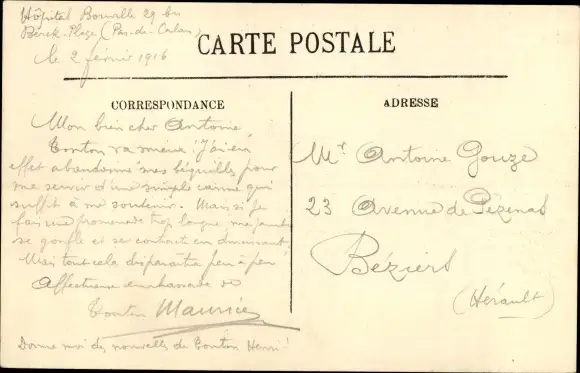 Hôpital Bouville 29 bis
Berck-Plage (Pas-de-Calais)
le 2 février 1916
CARTE POSTALE
CORRESPONDANCE
ADRESSE
Mon bien cher Antoine,
Tonton va mieux ! J'ai en
effet abandonné mes béquilles pour
me servir d'une simple canne qui
suffit à me soutenir. Mais si je
fais une promenade trop longue, ma jambe
se gonfle et se en
Mais tout cela disparaîtra peu à peu
Affectueuse embrassade
Tonton Maurice
Donne moi des nouvelles de Tonton Henri !
Mr Antoine Gouze
23 Avenue de Pézenas
Béziers
(Hérault)